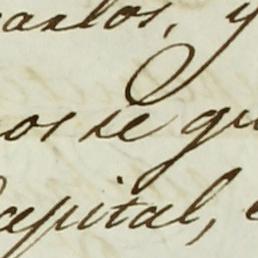 arlos, y
os de qu
Capital, e